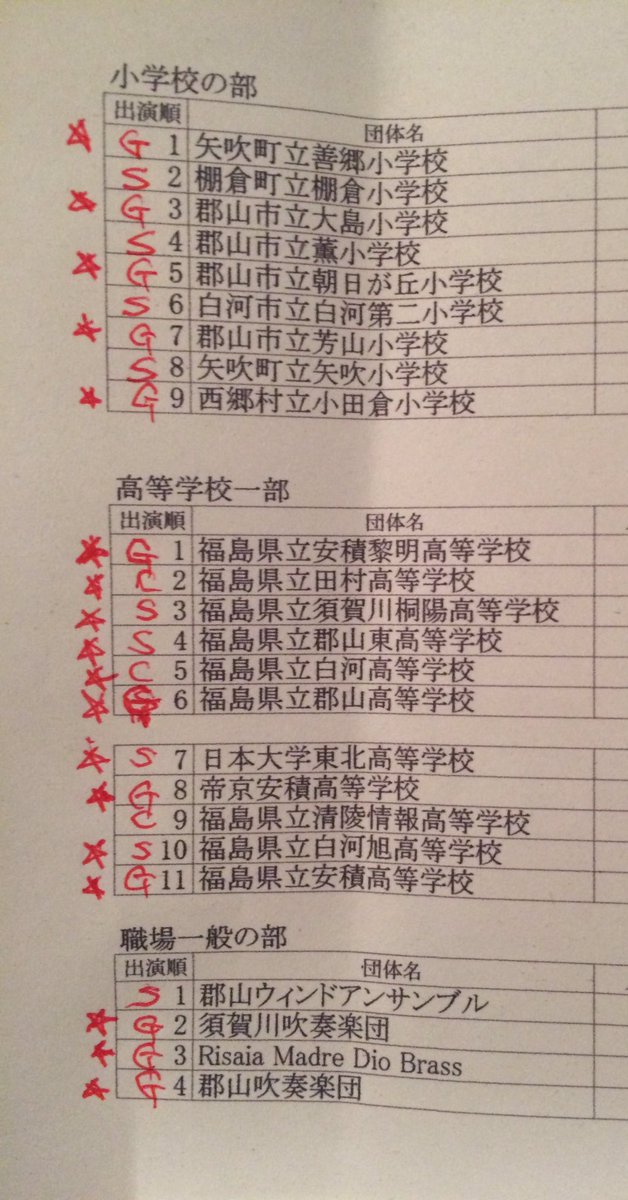 小学校の部
出演順 団体名
☆ G 1 矢吹町立善郷小学校
S 2 棚倉町立棚倉小学校
☆ G 3 郡山市立大島小学校
S 4 郡山市立薫小学校
☆ G 5 郡山市立朝日が丘小学校
S 6 白河市立白河第二小学校
☆ G 7 郡山市立芳山小学校
S 8 矢吹町立矢吹小学校
☆ G 9 西郷村立小田倉小学校
高等学校一部
出演順 団体名
☆ G 1 福島県立安積黎明高等学校
☆ C 2 福島県立田村高等学校
☆ S 3 福島県立須賀川桐陽高等学校
☆ S 4 福島県立郡山東高等学校
☆ C 5 福島県立白河高等学校
☆ 6 福島県立郡山高等学校
☆ S 7 日本大学東北高等学校
☆ G 8 帝京安積高等学校
C 9 福島県立清陵情報高等学校
☆ S 10 福島県立白河旭高等学校
☆ G 11 福島県立安積高等学校
職場一般の部
出演順 団体名
S 1 郡山ウィンドアンサンブル
☆ G 2 須賀川吹奏楽団
☆ G 3 Risaia Madre Dio Brass
☆ G 4 郡山吹奏楽団